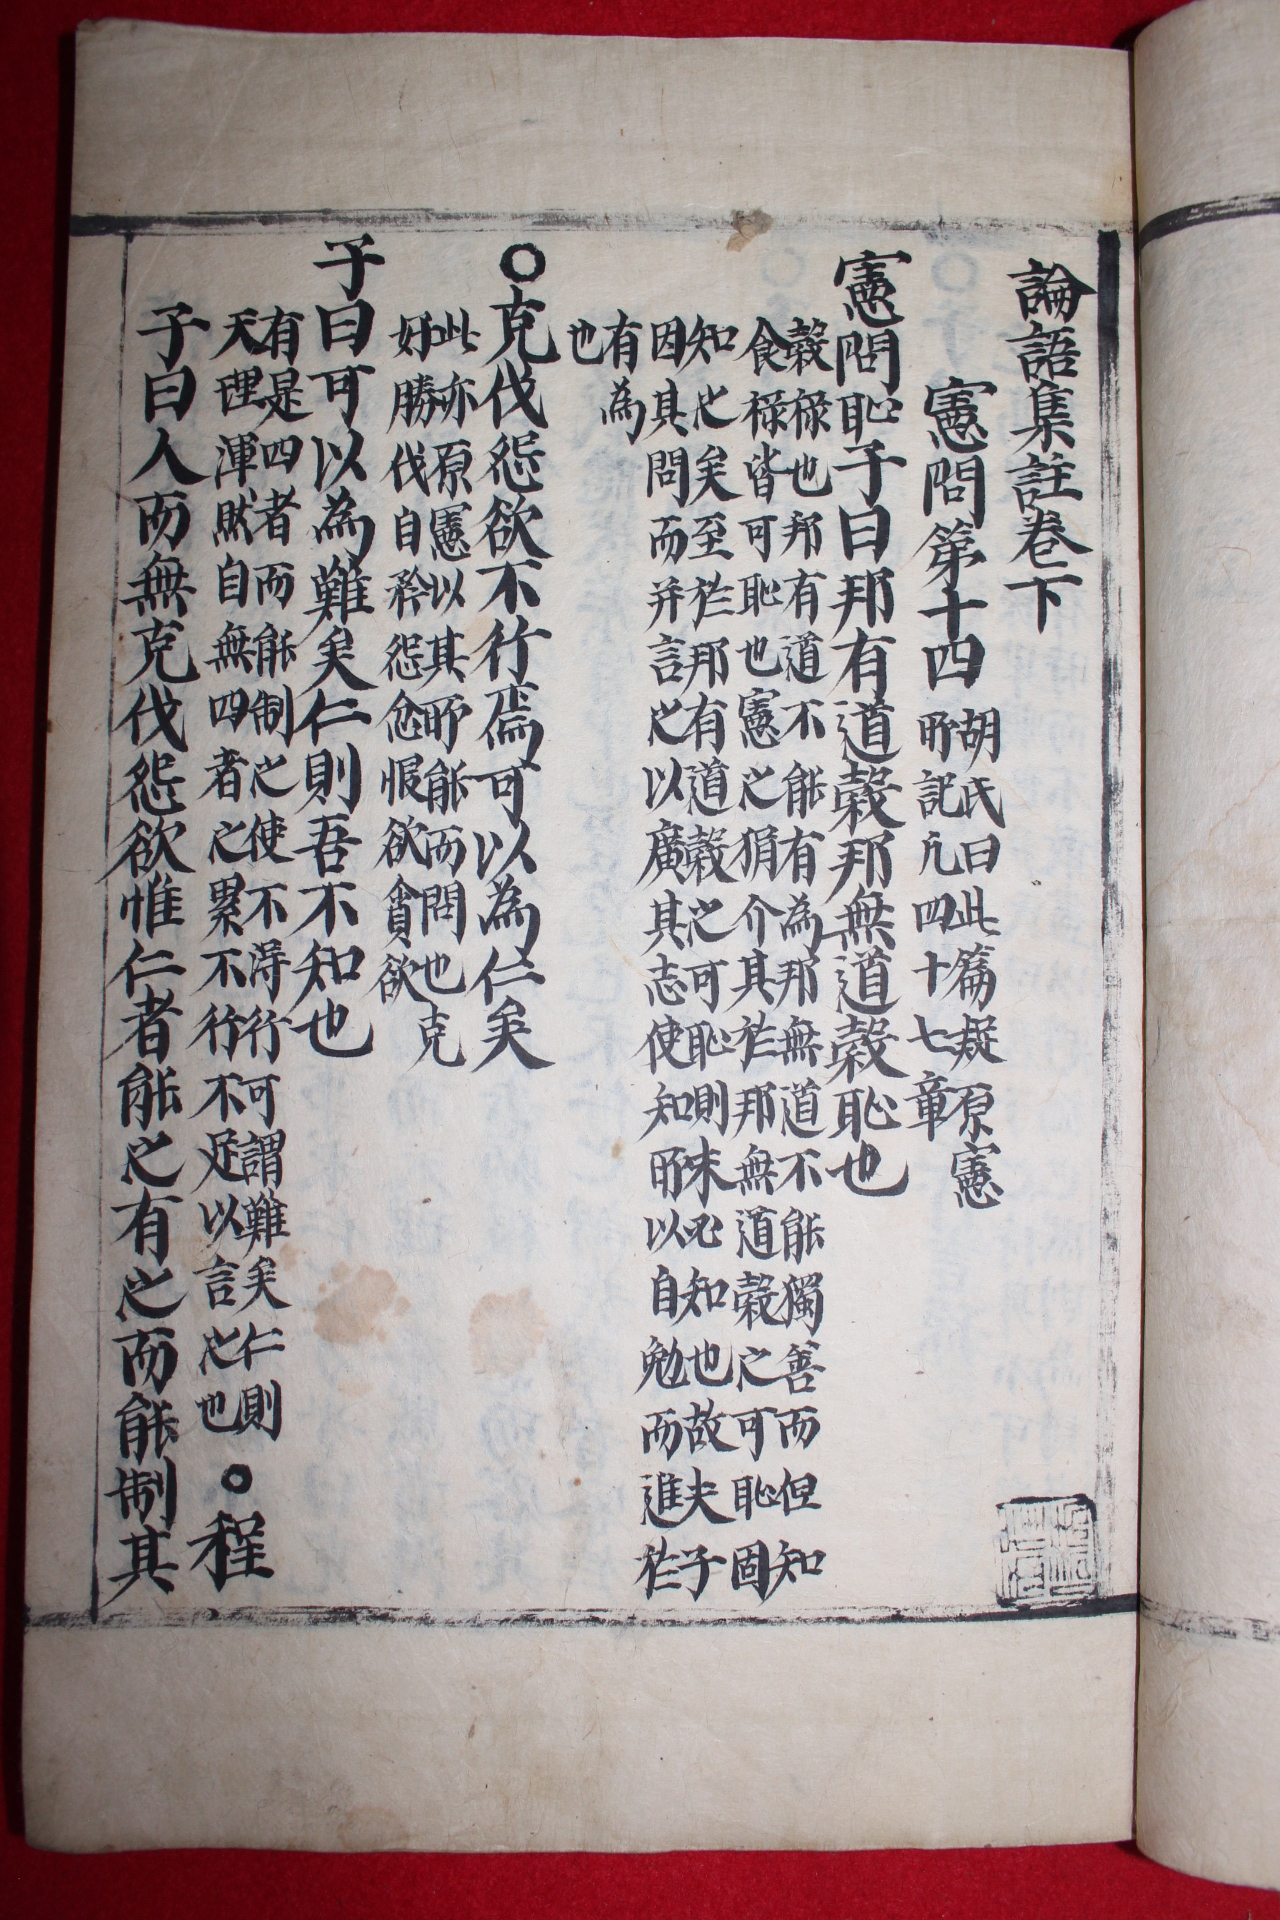 論語集註卷下
憲問第十四
胡氏曰此篇疑原憲
所記凡四十七章
憲問恥子曰邦有道穀邦無道穀恥也
穀祿也邦有道不能有為邦無道不能獨善而但知
食祿皆可恥也憲之狷介其於邦無道穀之可恥固
知之矣至於邦有道穀之可恥則未必知也故夫子
因其問而并言之以廣其志使知所以自勉而進於
有為
也
○克伐怨欲不行焉可以為仁矣
此亦原憲以其所能而問也克
好勝伐自矜怨忿恨欲貪欲
子曰可以為難矣仁則吾不知也
有是四者而能制之使不得行可謂難矣仁則
天理渾然自無四者之累不行不足以言之也
○程
子曰人而無克伐怨欲惟仁者能之有之而能制其